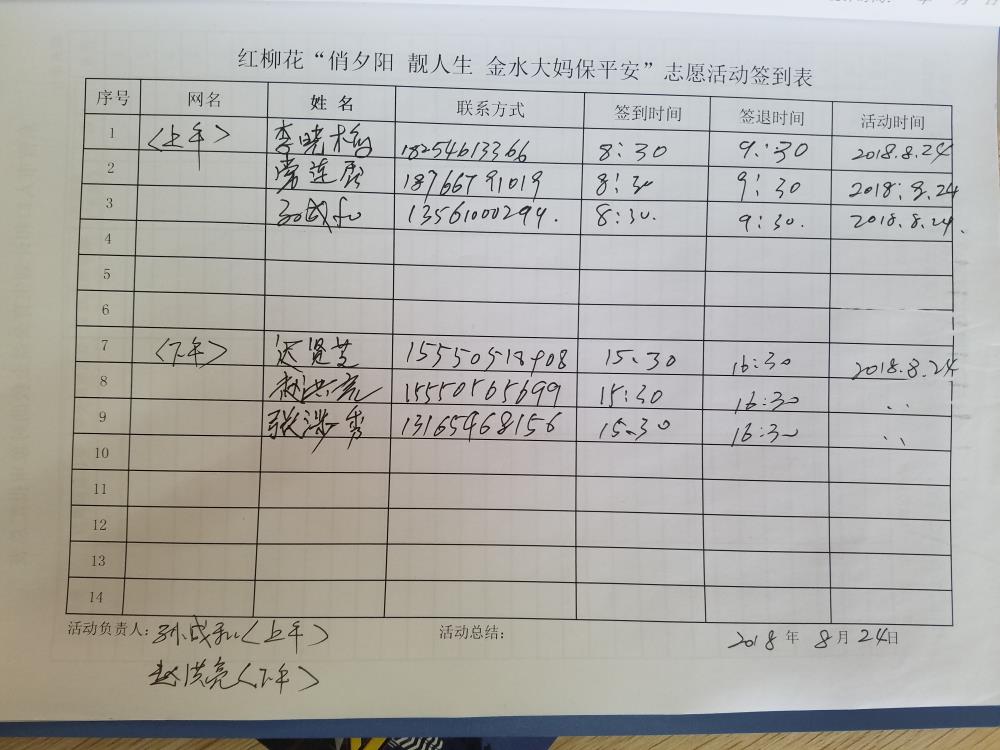 红柳花“俏夕阳 靓人生 金水大妈保平安”志愿活动签到表
序号 网名 姓 名 联系方式 签到时间 签退时间 活动时间
1 <上午> 李晓梅 18254613366 8:30 9:30 2018.8.24
2 常连 18766791019 8:30 9:30 2018.8.24
3 孙成和 13561000294. 8:30. 9:30. 2018.8.24.
4
5
6
7 <下午> 迟贤芝 15550518908 15.30 16:30 2018.8.24
8 赵洪亮 15550565699 15:30 16:30 ..
9 张 秀 13165468156 15.30 16:30 ..
10
11
12
13
14
活动负责人: 孙成和<上午> 活动总结: 2018 年 8 月 24 日
赵洪亮<下午>